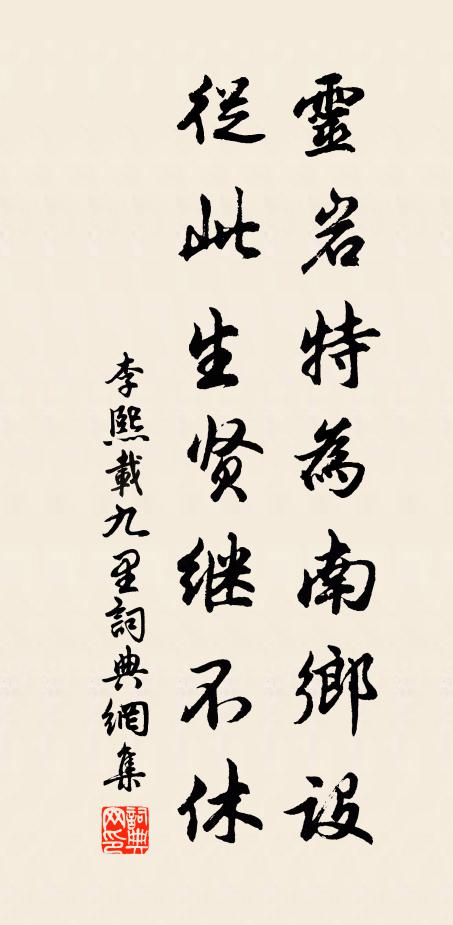 靈岩特為南鄉設
從此生贤继不休
李熙載九里詞典網集
詞典網印